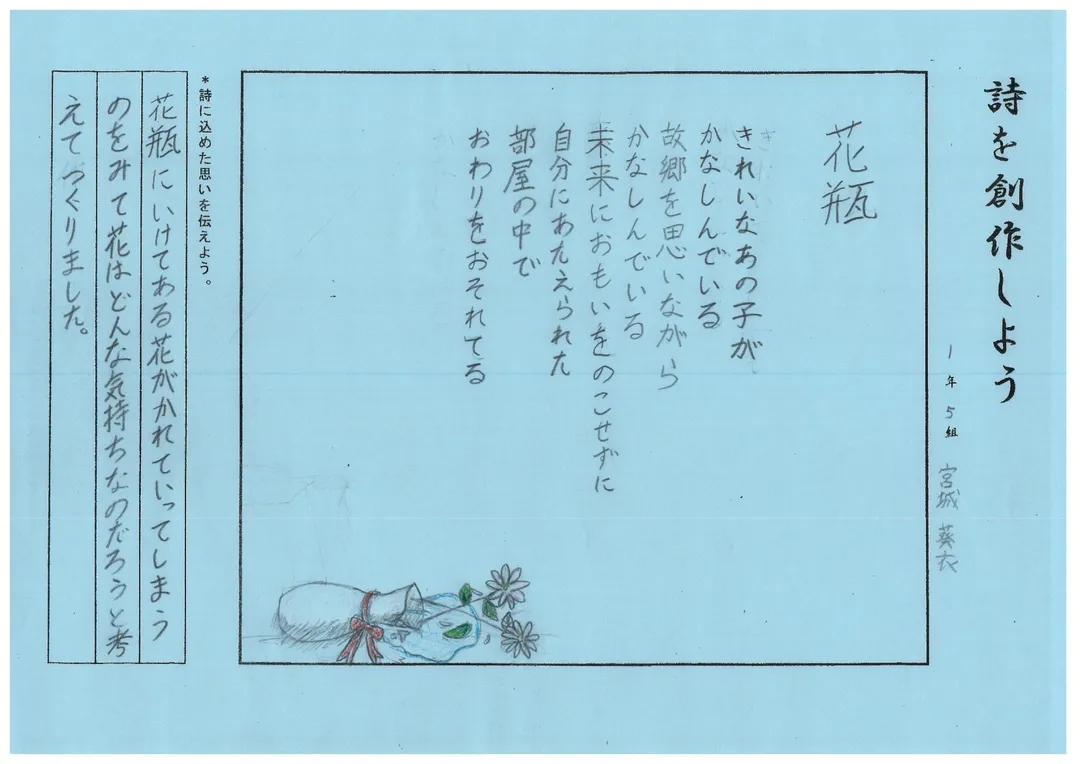 詩を創作しよう
1年 5組 宮城 葵衣
花瓶
きれいなあの子が
かなしんでいる
故郷を思いながら
かなしんでいる
未来におもいをのこせずに
自分にあたえられた
部屋の中で
おわりをおそれてる
*詩に込めた思いを伝えよう。
花瓶にいけてある花がかれていってしまう
のをみて花はどんな気持ちなのだろうと考
えてつくりました。